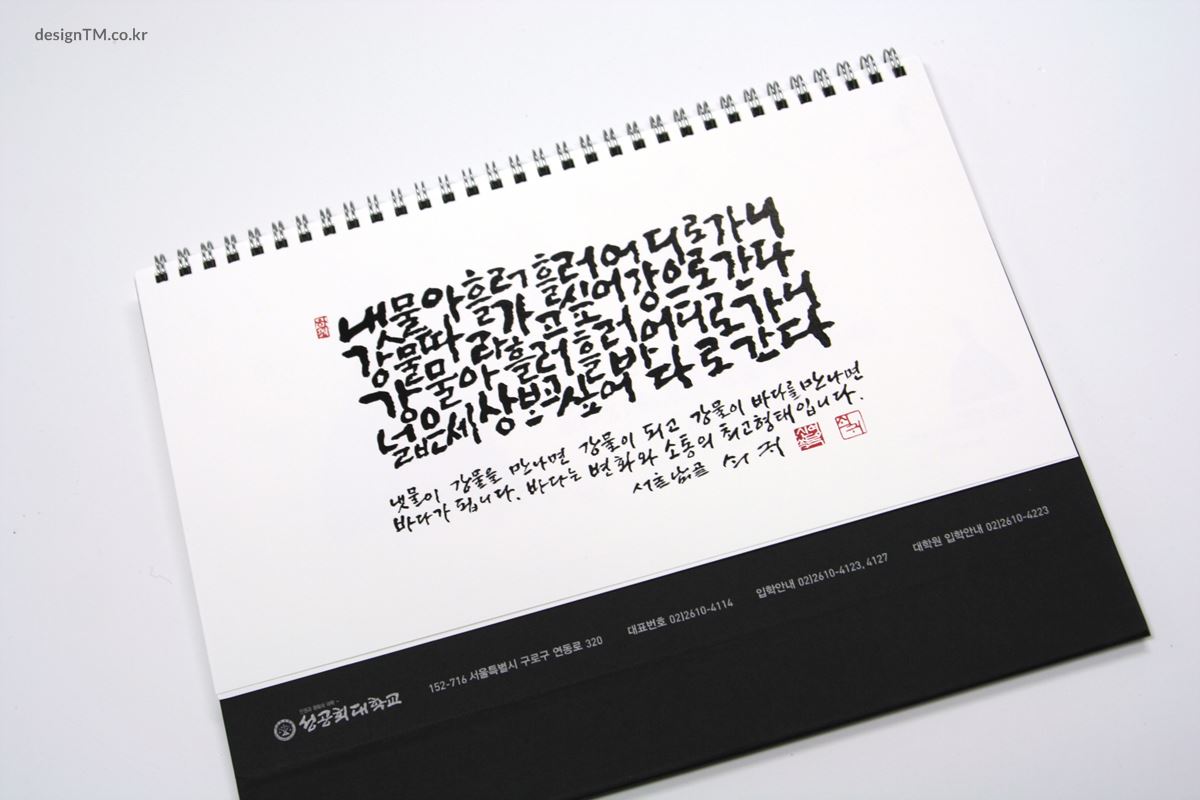 designTM.co.kr
냇물아 흘러 흘러 어디로 가니
강물따라 가고싶어 강으로 간다
강물아 흘러 흘러 어디로 가니
넓은세상 보고싶어 바다로 간다
냇물이 강물을 만나면 강물이 되고 강물이 바다를 만나면
바다가 됩니다. 바다는 변화와 소통의 최고형태입니다.
성공회대학교
152-716 서울특별시 구로구 연동로 320
대표번호 02)2610-4114
입학안내 02)2610-4123, 4127
대학원 입학안내 02)2610-4223